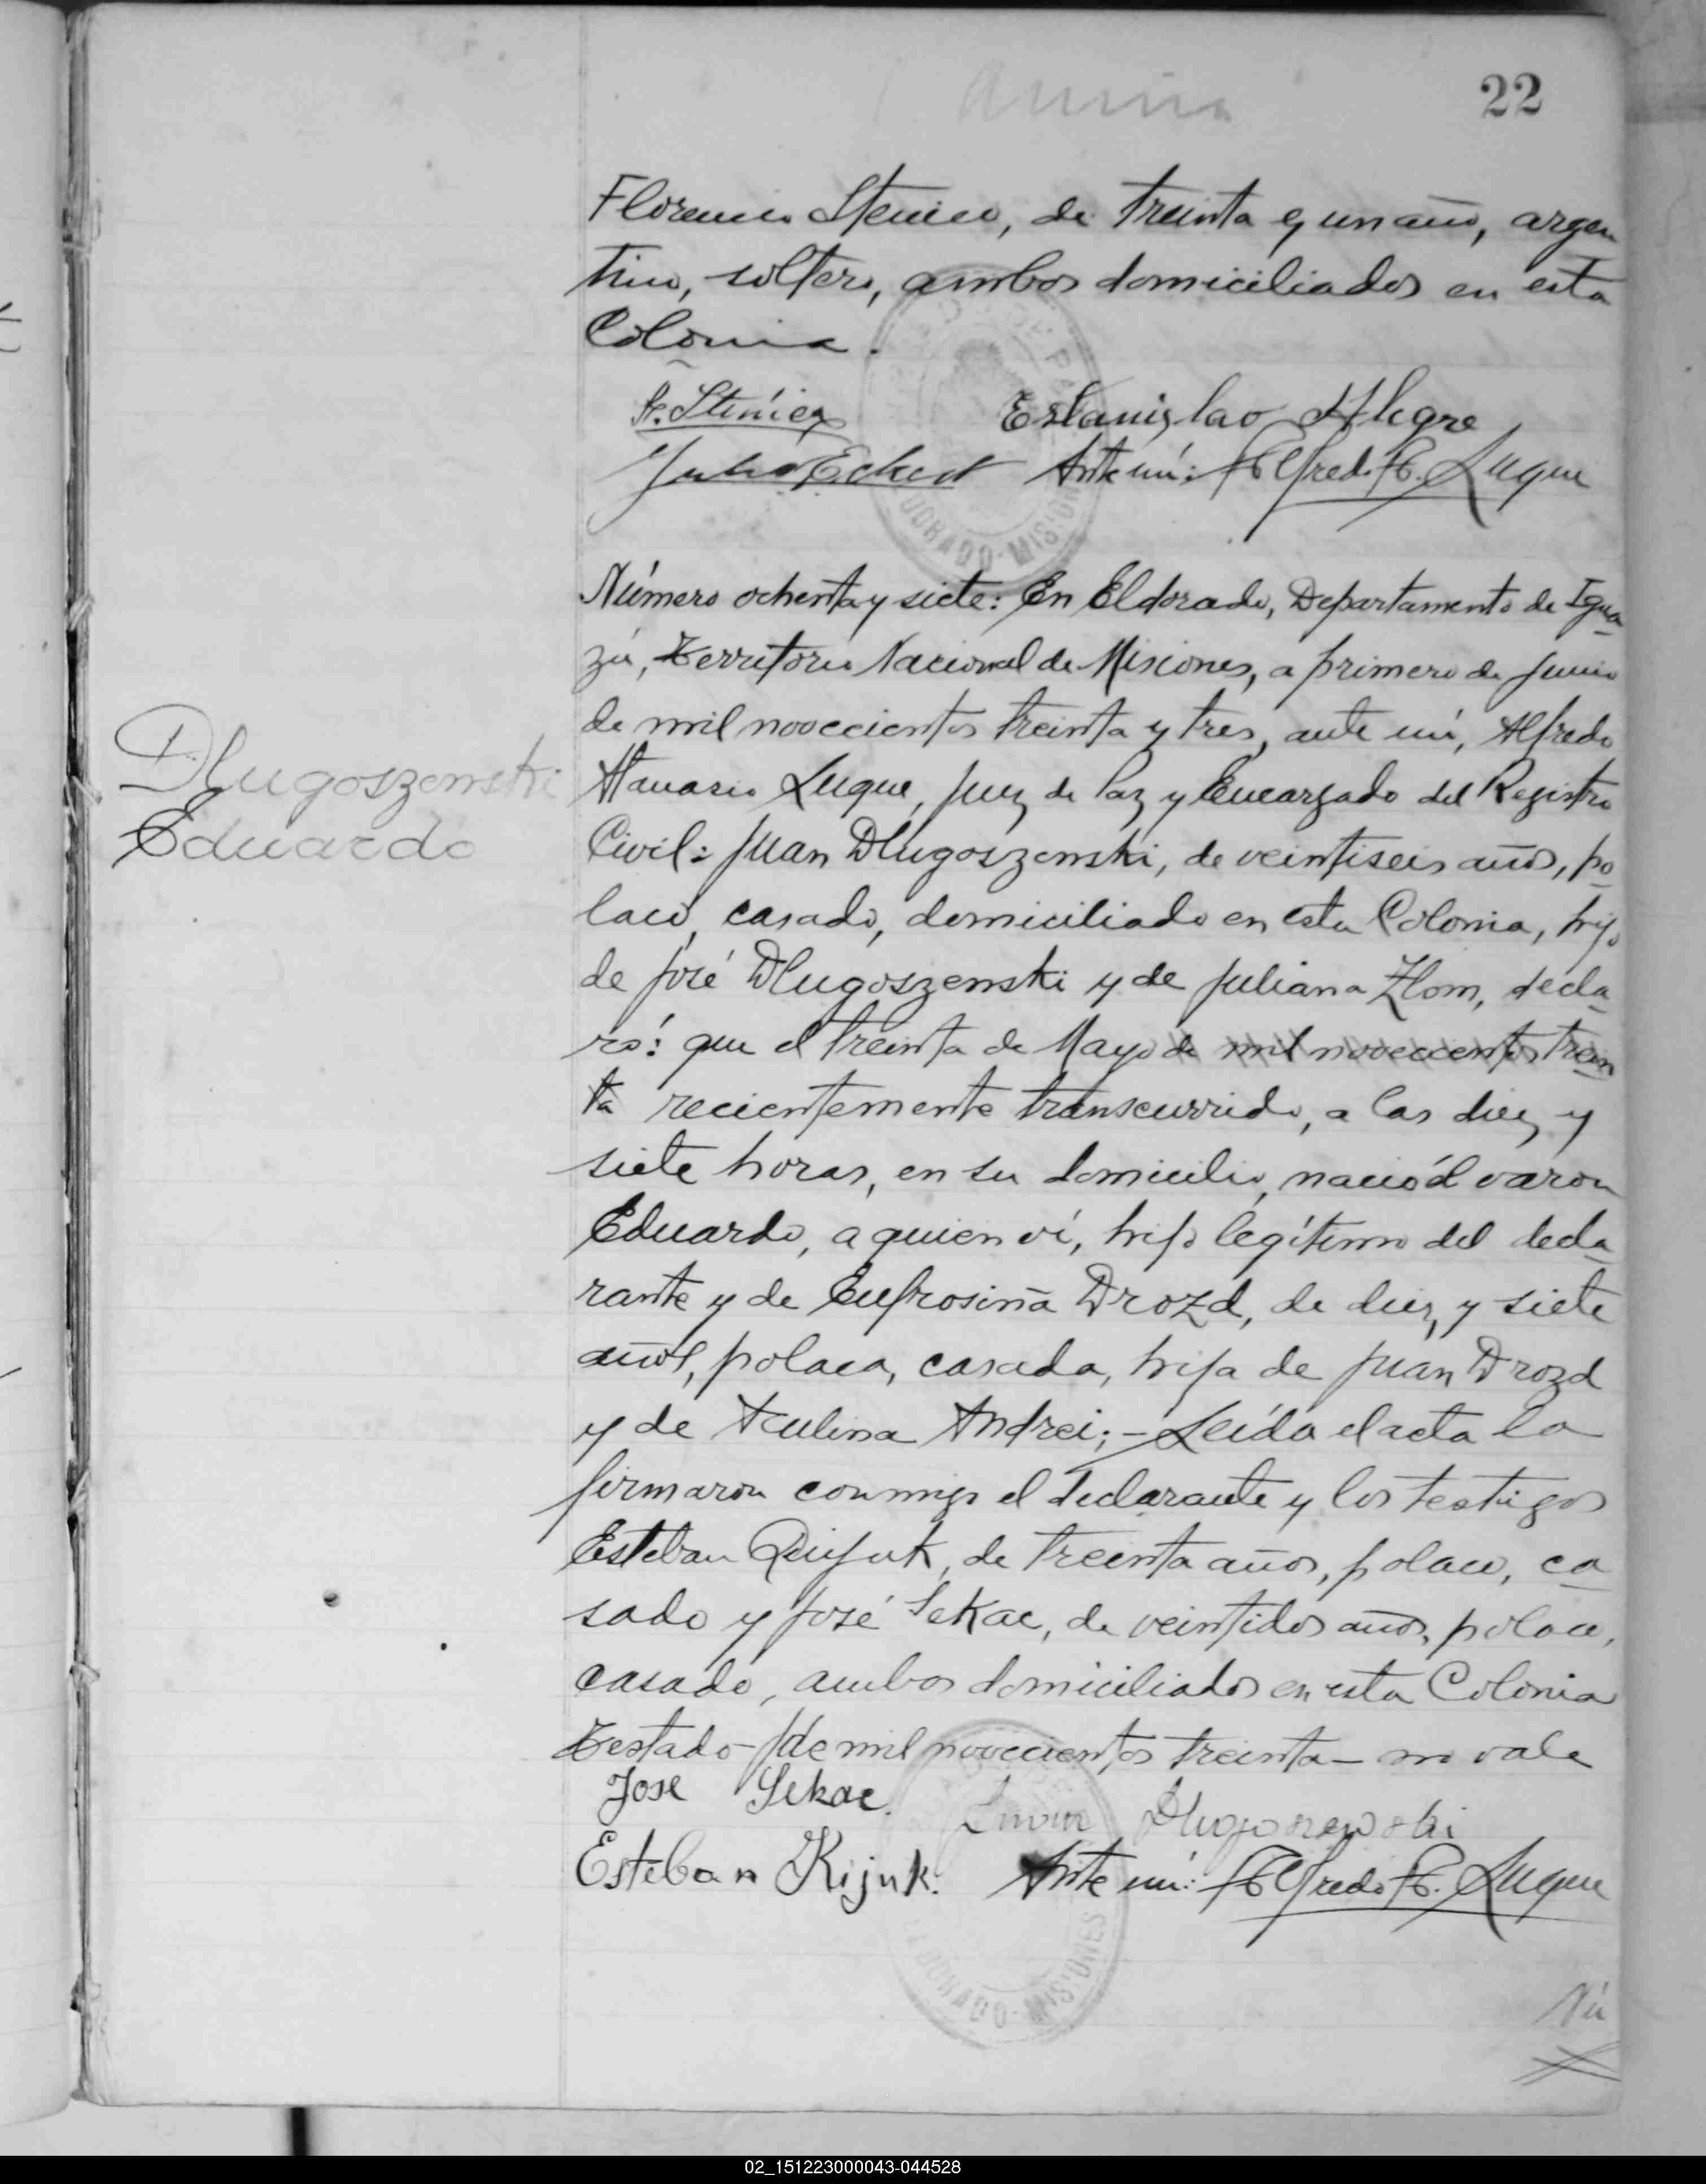 22
Florencio Stenico, de treinta y un año, argen
tino, soltero, ambos domiciliados en esta
Colonia.
Estanislao Alegre
Julio Eckert Ante mí: Alfredo A. Luque
Número ochenta y siete: En Eldorado, Departamento de Igua
zú, Territorio Nacional de Misiones, a primero de Junio
de mil novecientos treinta y tres, ante mí, Alfredo
Dlugoszenski
Eduardo
Atanasio Luque, Juez de Paz y Encargado del Registro
Civil: Juan Dlugoszenski, de veintiseis años, po
laco, casado, domiciliado en esta Colonia, hijo
de José Dlugoszenski y de Juliana Zlom, decla
ró: que el treinta de Mayo de mil novecientos trein
ta recientemente transcurrido, a las diez y
siete horas, en su domicilio, nació el varon
Eduardo, a quien ví, hijo legítimo del decla
rante y de Eufrosina Drozd, de diez y siete
años, polaca, casada, hija de Juan Drozd
y de Aculina Andrei;- Leída el acta la
firmaron conmigo el declarante y los testigos
Esteban Quijuk, de treinta años, polaco, ca
sado y José Sekac, de veintidos años, polaco,
casado, ambos domiciliados en esta Colonia
Testado-/de mil novecientos treinta- no vale
Jose Sekac. Dlugoszewski
Esteban Kijuk. Ante mí: Alfredo A. Luque
ELDORADO-MISIONES
Nú
02_151223000043-044528